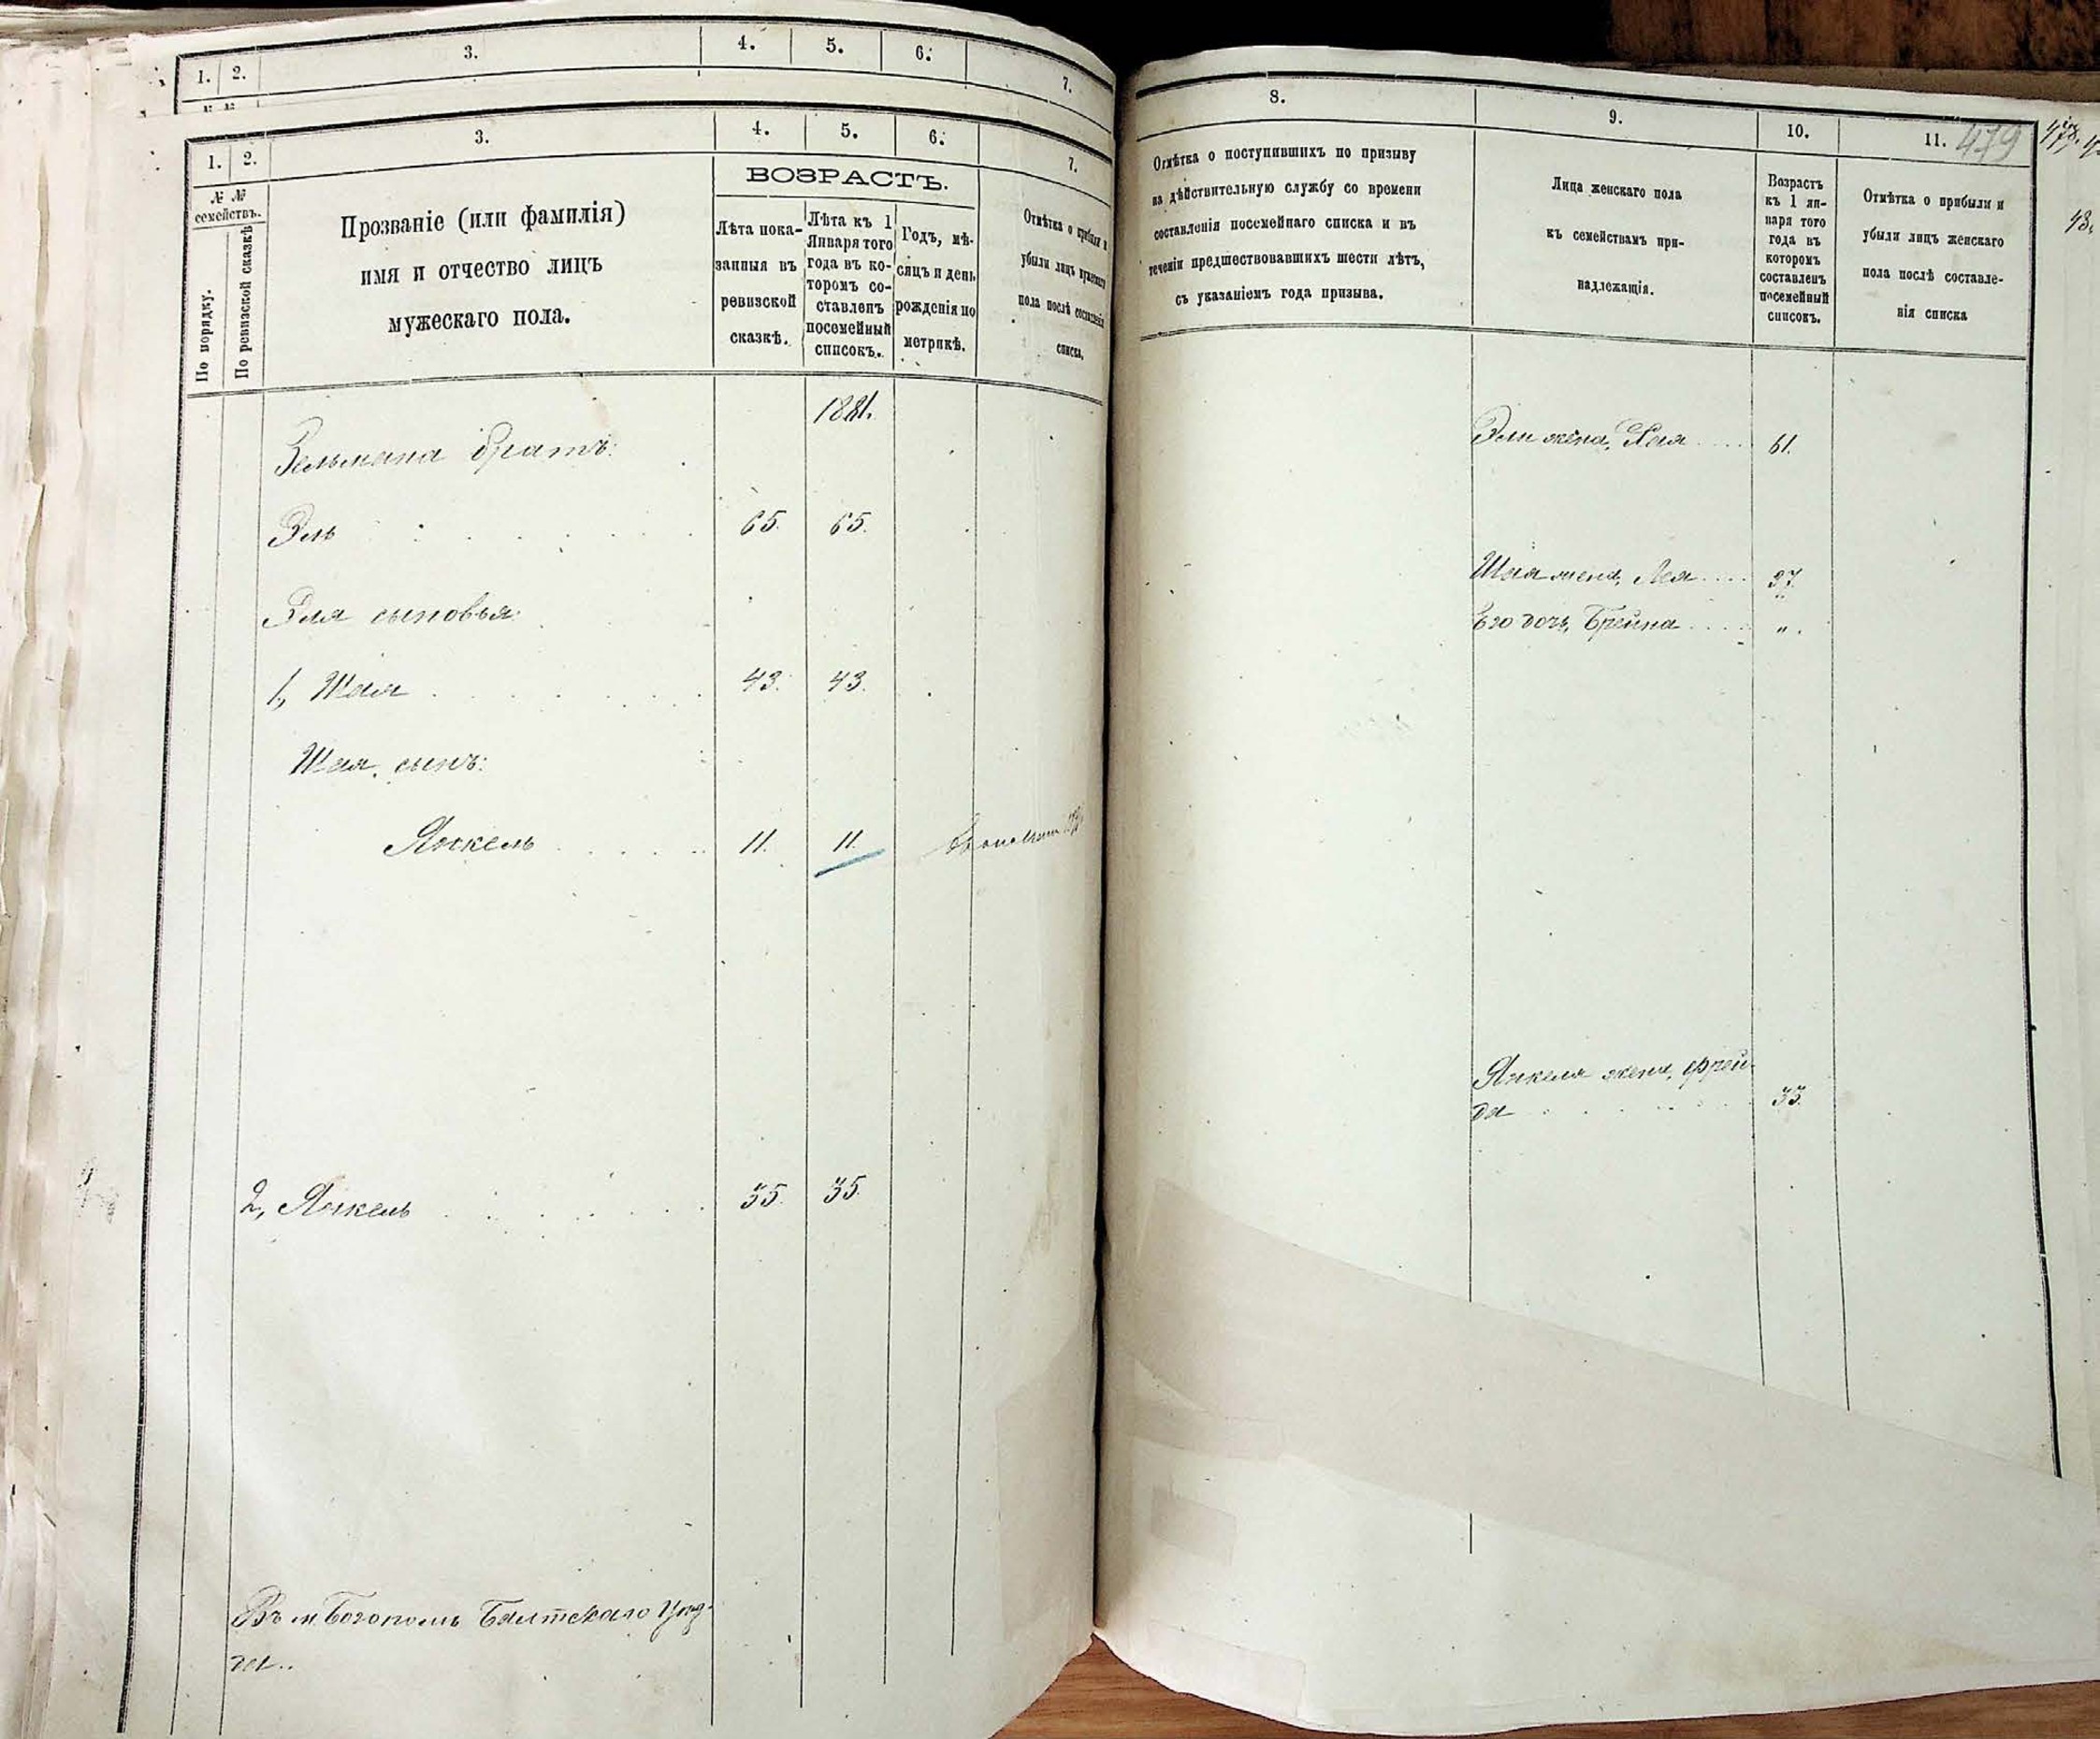 1. 2. 3. 4. 5. 6. 7.
№ №
1. 2. 3. 4. 5. 6. 7.
№ №
семействъ.
По порядку.
По ревизской сказкѣ
Прозваніе (или фамилія)
имя и отчество лицъ
мужескаго пола.
ВОЗРАСТЪ.
Лѣта пока-
занныя въ
ревизской
сказкѣ.
Лѣта къ 1
Января того
года въ ко-
торомъ со-
ставленъ
посемейный
списокъ.
Годъ, мѣ-
сяцъ и день
рожденія по
метрикѣ.
Отмѣтка о прибыли и
убыли лицъ мужескаго
пола послѣ составленія
списка.
1881.
Зельмана братъ:
Эль 65. 65.
Эля сыновья:
1, Шая 43. 43.
Шая, сынъ:
Янкель 11. 11.
2, Янкель 35. 35.
Въ м. Богополь Балтскаго Уѣз-
да..
8. 9. 10. 11. 479
478.
Отмѣтка о поступившихъ по призыву
на дѣйствительную службу со времени
составленія посемейнаго списка и въ
теченіи предшествовавшихъ шести лѣтъ,
съ указаніемъ года призыва.
Лица женскаго пола
къ семействамъ при-
надлежащія.
Возрастъ
къ 1 ян-
варя того
года въ
которомъ
составленъ
посемейный
списокъ.
Отмѣтка о прибыли и
убыли лицъ женскаго
пола послѣ составле-
нія списка
Эли жена, Хая 61.
Шая жена, Лея 37.
Его дочь, Брейна „.
Янкеля жена, Фрей-
да 33.